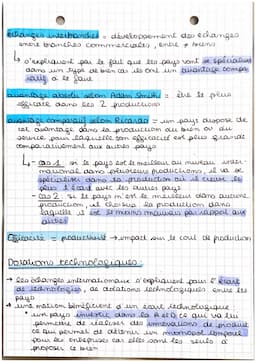 échanges interbranches = développement des échanges
entre branches commerciales, entre ≠ biens
↳ s'expliquent par le fait que les pays vont se spécialiser
dans un type de bien car ils ont un avantage compa-
ratif à le faire
avantage absolu selon Adam Smith = être le plus
efficace dans les 2 productions
avantage comparatif selon Ricardo = un pays dispose de
cet avantage dans la production du bien ou du
service pour laquelle son efficacité est plus grande
comparativement aux autres pays
↳ - cas 1 si le pays est le meilleur au niveau inter-
national dans plusieurs productions, il va se
spécialiser dans la production où il creuse le
plus l'écart avec les autres pays
- cas 2 si le pays n'est le meilleur dans aucune
production, il choisit la production dans
laquelle il est le moins mauvais par rapport aux
autres
Efficacité = productivité → impact sur le coût de production
Dotations technologiques :
→ les échanges internationaux s'expliquent par l'écart
de technologies, de dotations technologiques entre les
pays
→ une nation bénéficie d'un écart technologique :
• un pays investit dans la R et D ce qui va lui
permettre de réaliser des innovations de produit
ce qui permet de détenir un monopole temporel
pour les entreprises car elles sont les seuls à
proposer ce bien